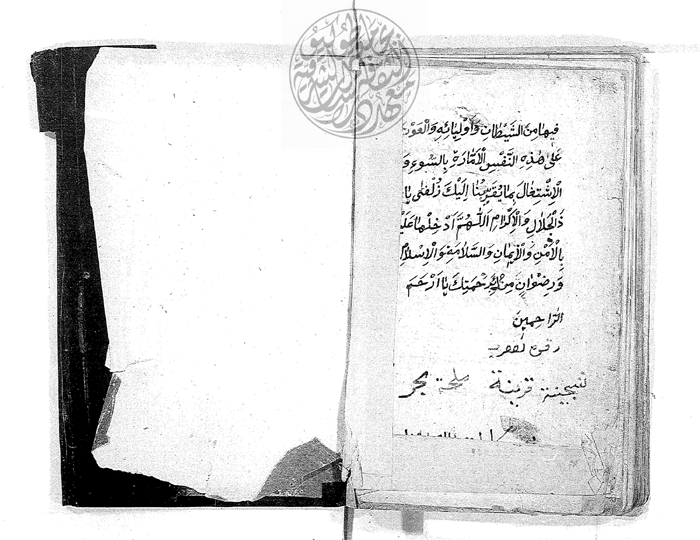 فيها من الشَّيْطَانِ وَاَوْلِيَائِهِ وَالْعَوْنَ
عَلىٰ هٰذِهِ النَّفْسِ الْاَمَّارَةِ بِالسُّوءِ وَ
الْاِشْتِغَالَ بِمَا يُقَرِّبُنَا اِلَيْكَ زُلْفىٰ يَا
ذَا الْجَلَالِ وَالْاِكْرَامِ اَللّٰهُمَّ اَدْخِلْهَا عَلَيْنَا
بِالْاَمْنِ وَالْاِيمَانِ وَالسَّلَامَةِ وَالْاِسْلَامِ
وَرِضْوَانٍ مِنْكَ بِرَحْمَتِكَ يَا اَرْحَمَ
الرَّاحِمِينَ
قرينة
بحر